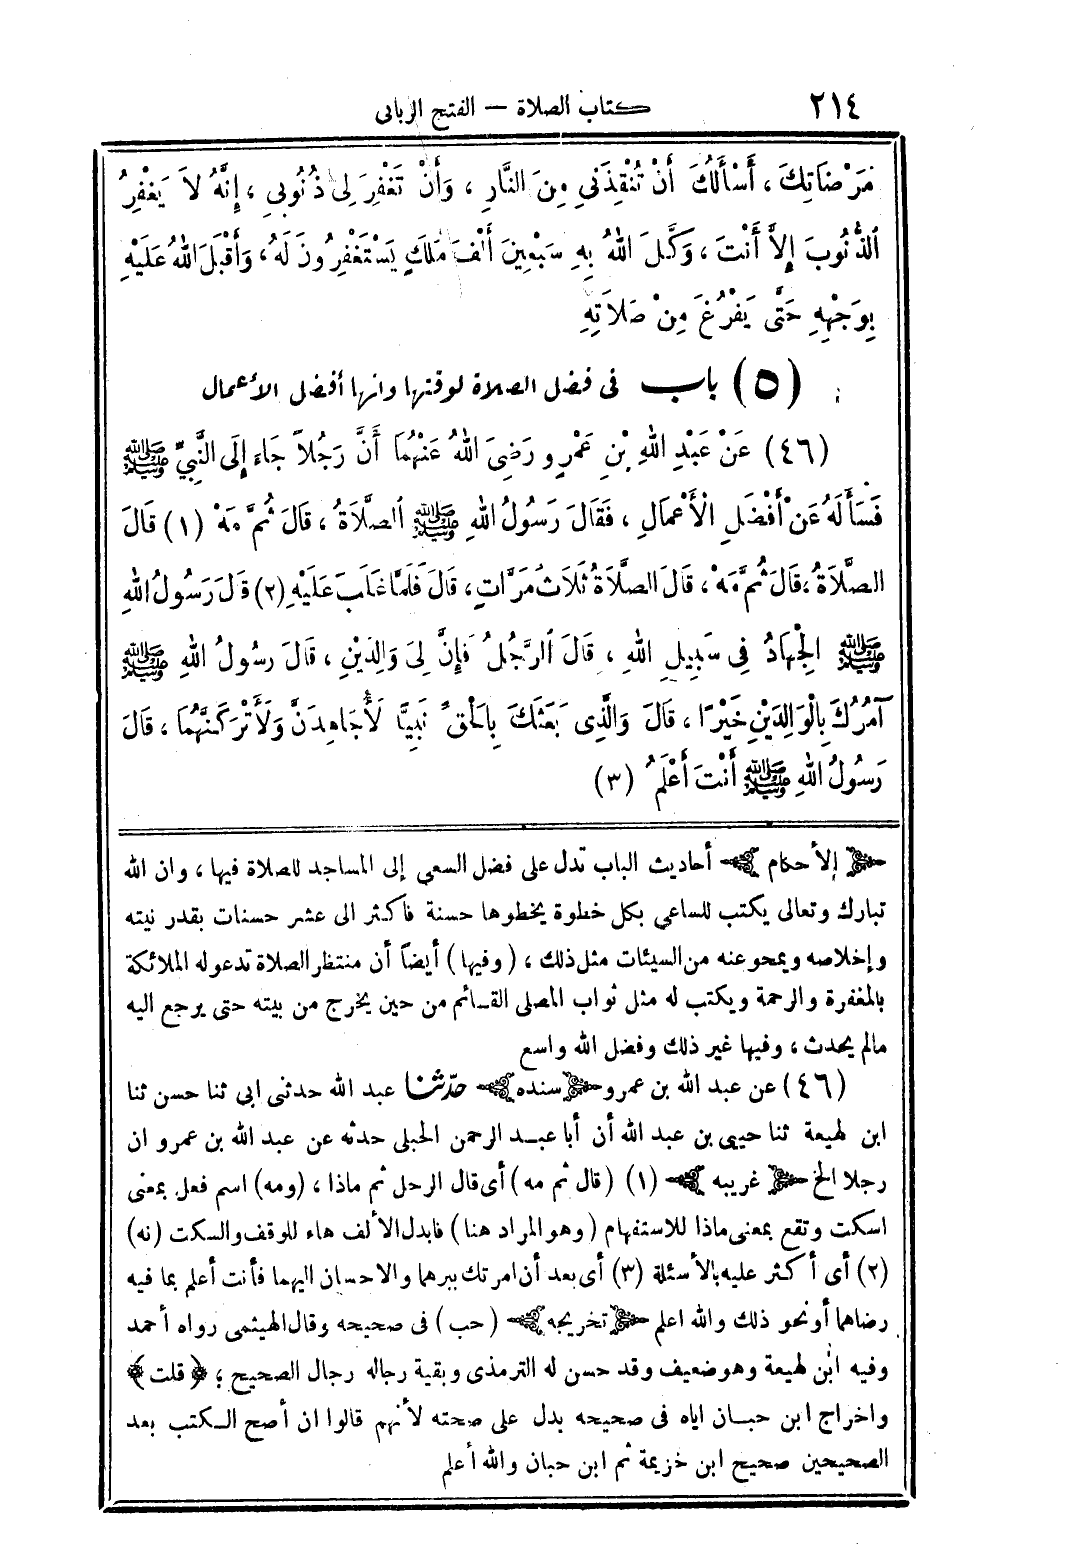 ٢١٤ كتاب الصلاة — الفتح الربانى
مَرْضَاتِكَ ، أَسْأَلُكَ أَنْ تُنْقِذَنِي مِنَ النَّارِ ، وَأَنْ تَغْفِرَ لِى ذُنُوبِي ، إِنَّهُ لاَ يَغْفِرُ
ٱلذُّنُوبَ إِلاَّ أَنْتَ ، وَكَّلَ اللهُ بِهِ سَبْعِينَ أَلْفَ مَلَكٍ يَسْتَغْفِرُونَ لَهُ ، وَأَقْبَلَ اللهُ عَلَيْهِ
بِوَجْهِهِ حَتَّى يَفْرُغَ مِنْ صَلاَتِهِ
(٥) باب فى فضل الصلاة لوقتها وانها أفضل الأعمال
(٤٦) عَنْ عَبْدِ اللهِ بْنِ عَمْرٍو رَضِىَ اللهُ عَنْهُمَا أَنَّ رَجُلاً جَاءَ إِلَى النَّبِيِّ ﷺ
فَسَأَلَهُ عَنْ أَفْضَلِ الْأَعْمَالِ ، فَقَالَ رَسُولُ اللهِ ﷺ ٱلصَّلاَةُ ، قَالَ ثُمَّ مَهْ (١) قَالَ
الصَّلاَةُ ، قَالَ ثُمَّ مَهْ ، قَالَ الصَّلاَةُ ثَلاَثَ مَرَّاتٍ ، قَالَ فَلَمَّا غَلَبَ عَلَيْهِ (٢) قَلَ رَسُولُ اللهِ
ﷺ الْجِهَادُ فِى سَبِيلِ اللهِ ، قَالَ ٱلرَّجُلُ فَإِنَّ لِىَ وَالِدَيْنِ ، قَالَ رَسُولُ اللهِ ﷺ
آمُرُكَ بِالْوَالِدَيْنِ خَيْرًا ، قَالَ وَالَّذِى بَعَثَكَ بِالْحَقِّ نَبِيًّا لَأُجَاهِدَنَّ وَلَأَتْرُكَنَّهُمَا ، قَالَ
رَسُولُ اللهِ ﷺ أَنْتَ أَعْلَمُ (٣)
﴿ الأحكام ﴾ أحاديث الباب تدل على فضل السعي إلى المساجد للصلاة فيها ، وان الله
تبارك وتعالى يكتب للساعي بكل خطوة يخطوها حسنة فاكثر الى عشر حسنات بقدر نيته
وإخلاصه ويمحو عنه من السيئات مثل ذلك ، (وفيها) أيضاً أن منتظر الصلاة تدعو له الملائكة
بالمغفرة والرحمة ويكتب له مثل ثواب المصلى القائم من حين يخرج من بيته حتى يرجع اليه
مالم يحدث ، وفيها غير ذلك وفضل الله واسع
(٤٦) عن عبد الله بن عمرو ﴿ سنده ﴾ حدّثنا عبد الله حدثنى ابي ثنا حسن ثنا
ابن لهيعة ثنا حيي بن عبد الله أن أبا عبد الرحمن الحبلى حدثه عن عبد الله بن عمرو ان
رجلا الخ ﴿ غريبه ﴾ (١) (قال ثم مه) أى قال الرجل ثم ماذا ، (ومه) اسم فعل بمعنى
اسكت وتقع بمعنى ماذا للاستفهام (وهو المراد هنا) فابدل الألف هاء للوقف والسكت (نه)
(٢) أى أكثر عليه بالأسئلة (٣) أى بعد أن امرتك ببرهما والاحسان اليهما فأنت أعلم بما فيه
رضاهما أونحو ذلك والله اعلم ﴿ تخريجه ﴾ (حب) فى صحيحه وقال الهيثمى رواه أحمد
وفيه ابن لهيعة وهو ضعيف وقد حسن له الترمذى وبقية رجاله رجال الصحيح ؛ ﴿ قلت ﴾
واخراج ابن حبان اياه فى صحيحه يدل على صحته لأنهم قالوا ان أصح الكتب بعد
الصحيحين صحيح ابن خزيمة ثم ابن حبان والله أعلم